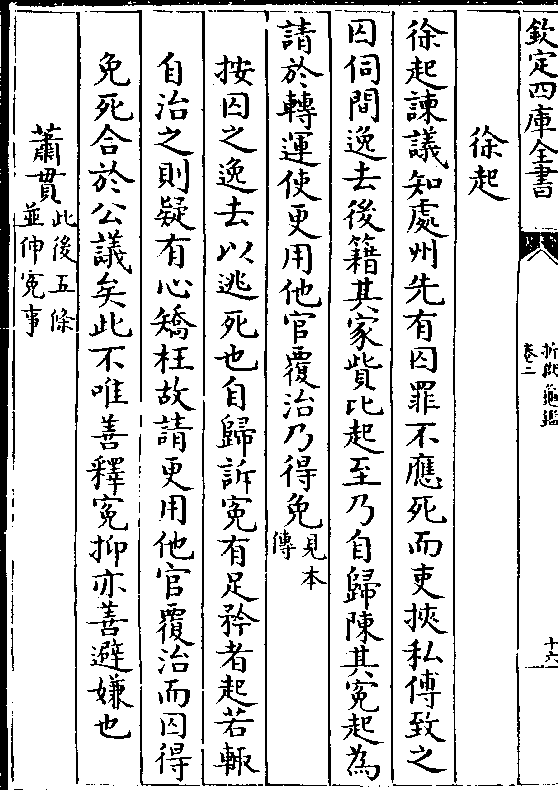 欽定四庫全書
折獄龜鑑
卷二
十六
徐起
徐起諫議知處州先有囚罪不應死而吏挾私傅致之
囚伺間逸去後籍其家貲比起至乃自歸陳其寃起為
請於轉運使更用他官覆治乃得免見本
傳
按囚之逸去以逃死也自歸訴寃有足矜者起若輙
自治之則疑有心矯枉故請更用他官覆治而囚得
免死合於公議矣此不唯善釋寃抑亦善避嫌也
蕭貫此後五條
並伸寃事